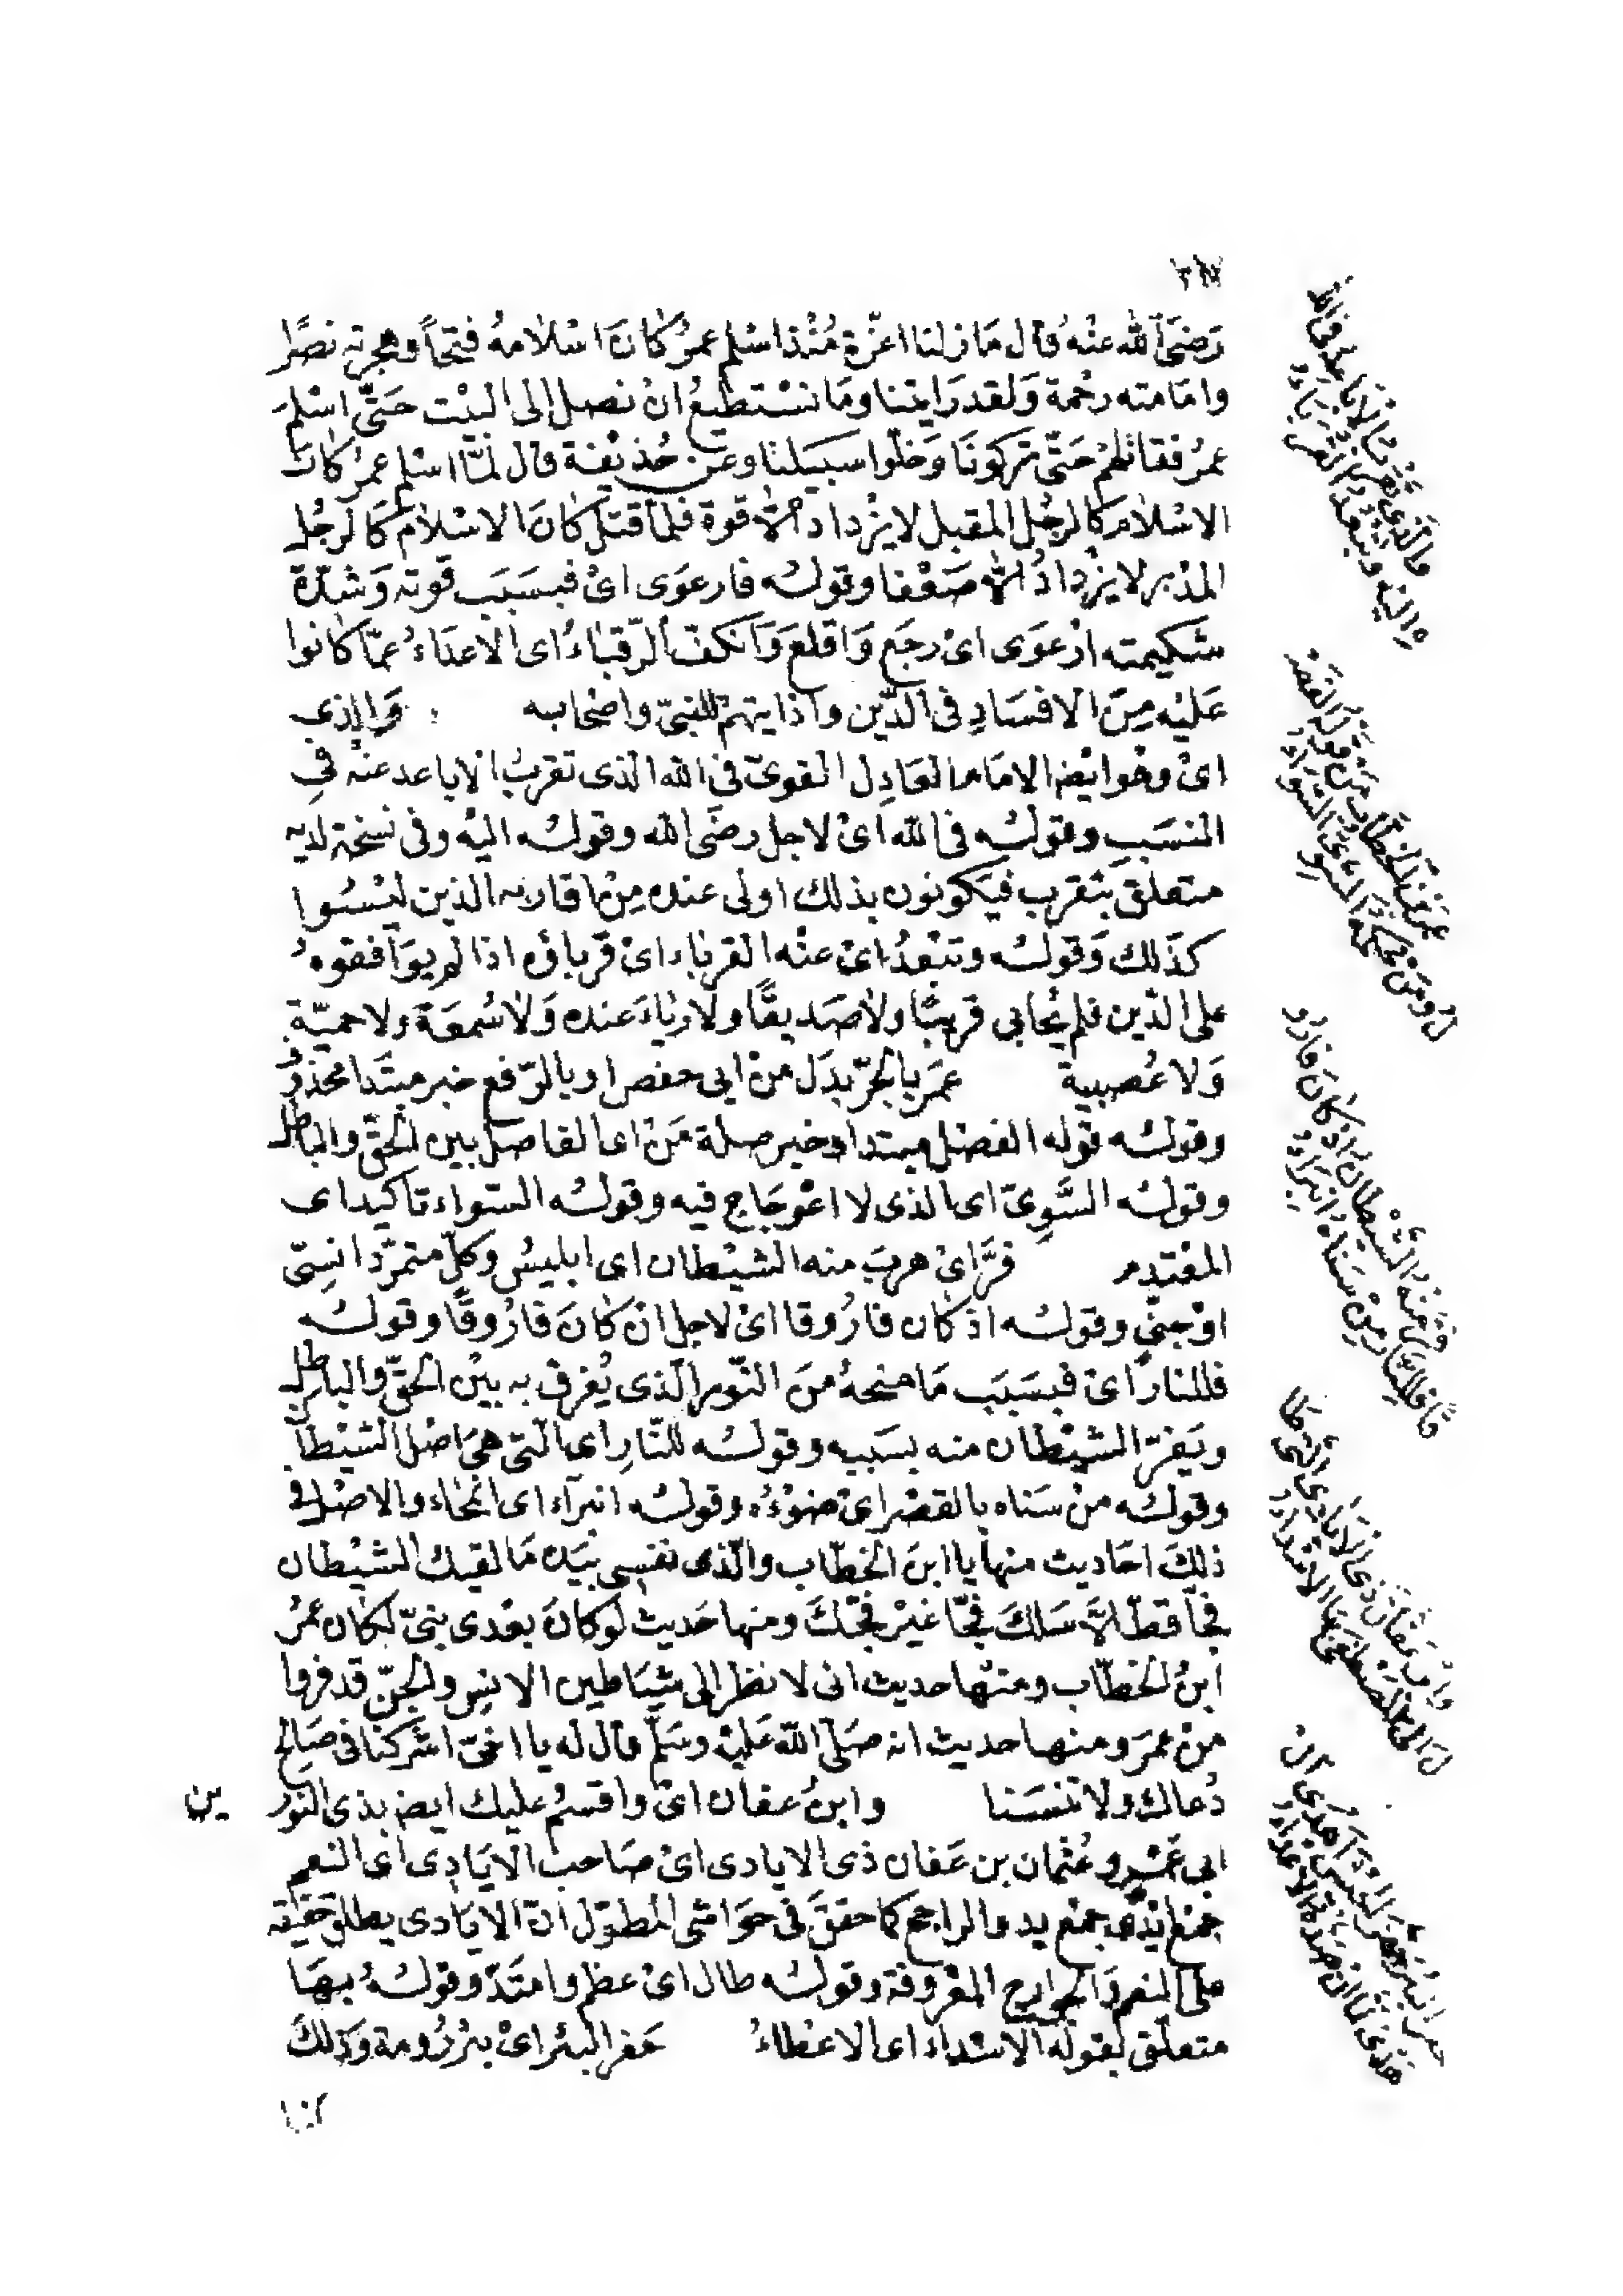 رَضِىَ اللّٰه عنْهُ قال مَا زلنا اعزّة مُنْذ اسْلم عمرُ كانَ اسْلامهُ فتحاً وهجرته نصْرًا
وامَامته رحْمة وَلقد رَايتنا ومَا نسْتطيعُ انْ نصل الى البيْت حَتّى اسْلمَ
عمرُ فقاتلهمْ حَتّى تركونَا وَخلّوا سبيلنا وعَن حُذيْفة قال لمّا اسْلم عمرُ كانَ
الاسْلام كالرجُل المقبل لا يزْداد الّا قوة فلما قتل كانَ الاسْلام كَالرجُل
المدْبر لا يزْدادُ الّا ضَعْفا وقولـُه فارعوَى اىْ فبسَبَب قوته وَشدّة
شَكيمته ارْعوَى اىْ رجَع وَاقلعَ وَانكفّ الرّقبَاءُ اى الاعدَاءُ عمّا كانوا
عَليْه مِنَ الافْسَادِ فى الدّين وَاذايتهمْ للنبىّ واصْحابه وَالذى
اىْ وهْوَ ايْض الامَام العَادِل القوىّ فى الله الذى تقربُ الاباعد عنْه فِى
المنسَب وقولـُه فى اللّٰه اىْ لاجل رضَى اللّٰه وقولـُه اليْه وفى نسْخة لديه
متعلق بتقرب فيَكونون بذلك اولى عنده مِنْ اقاربه الذين ليْسُوا
كذَلك وَقولـُه وتبْعدُ اىْ عنْه القربَاء اىْ قربَاؤه اذا لم يوَافقوهُ
على الدّين فلم يُحابى قريبًا ولا صَديقًا ولا ريَاءَ عنده وَلا سُمعَة ولا حميّة
وَلا عُصبية عمَر بالجرّ بدَل منْ ابى حفص او بالرّفع خبر مبتَدا محذوف
وقولـُه قوله الفصْل مبتدا وخبر صلة مَنْ اى الفاصل بين الحقّ والباطل
وقولـُه السَّوِىّ اى الذى لا اعْوجَاج فيه وقولـُه السّواء تاكيد اى
المقتدم فرَّ اىْ هربَ منه الشيْطان اى ابليسُ وكلّ متمرّد انسِىّ
اوْ جنىّ وقولـُه اذ كان فارُوقا اىْ لاجل انْ كانَ فارُوقًا وقولـُه
فللنار اىْ فبسَبَب مَا منحهُ منَ النّور الّذى يُفرق به بيْن الحقّ والباطل
ويَفرّ الشيْطان منه بسَببه وقولـُه للنّار اى التى هىَ اصْل الشيْطا
وقولـُه منْ سَناه بالقصْر اىْ ضوْءُه وقولـُه انبرَاء اى انمحَاء والاصْل فى
ذلكَ احَاديث منها يا ابنَ الخطّاب والّذى نفسى بيَده مَا لقيك الشيْطان
فجّا قطّ الّا سَلكَ فجّا غيْر فجّكَ ومنها حَديث لوْ كانَ بعْدى بنىّ لكانَ عمرُ
ابنُ الخطّاب ومنْها حديث انى لانظر الى شيَاطين الانس والجنّ قد فروا
منْ عمرَ ومنها حديث انه صَلّى اللّه عَليْه وسَلّم قال له يا اخىّ اشركنا فى صَالح
دُعائك ولا تنْسَنا وابنُ عفان اىْ واقسمُ عليك ايض بذى النّور
ين
ابى عَمْرو عُثمان بن عَفان ذى الايادى اىْ صَاحب الايَادِى اى النعم
جمْع ايْدٍ جمْع يد والراجح كما حققَ فى حَواشى المُطوّل انّ الايَادى يطلق حَقيقة
على النعم وَالجوارح المعْروفة وقولـُه طال اىْ عظم وامتَدّ وقولـُه بهَا
متعلّق بقوله الاسْداء اى الاعْطاءُ حَفر البئر اىْ بئر رُومة وَذلكَ
والّذى تقْرب الاباعد فى اللّه
اليْه وتبْعدُ القربَاءُ
عمَرَ بْن الخطاب مَنْ قوله الفصْل
ومَنْ حكمه السّوىّ السّواءُ
فرّ منْه الشّيْطان اذ كان فارو
قا فللنار مِنْ سَنَاه انبرَاءُ
وابن عَفان ذى الايَادى الّتى طا
ل الى المصْطفى بها الاسْداءُ